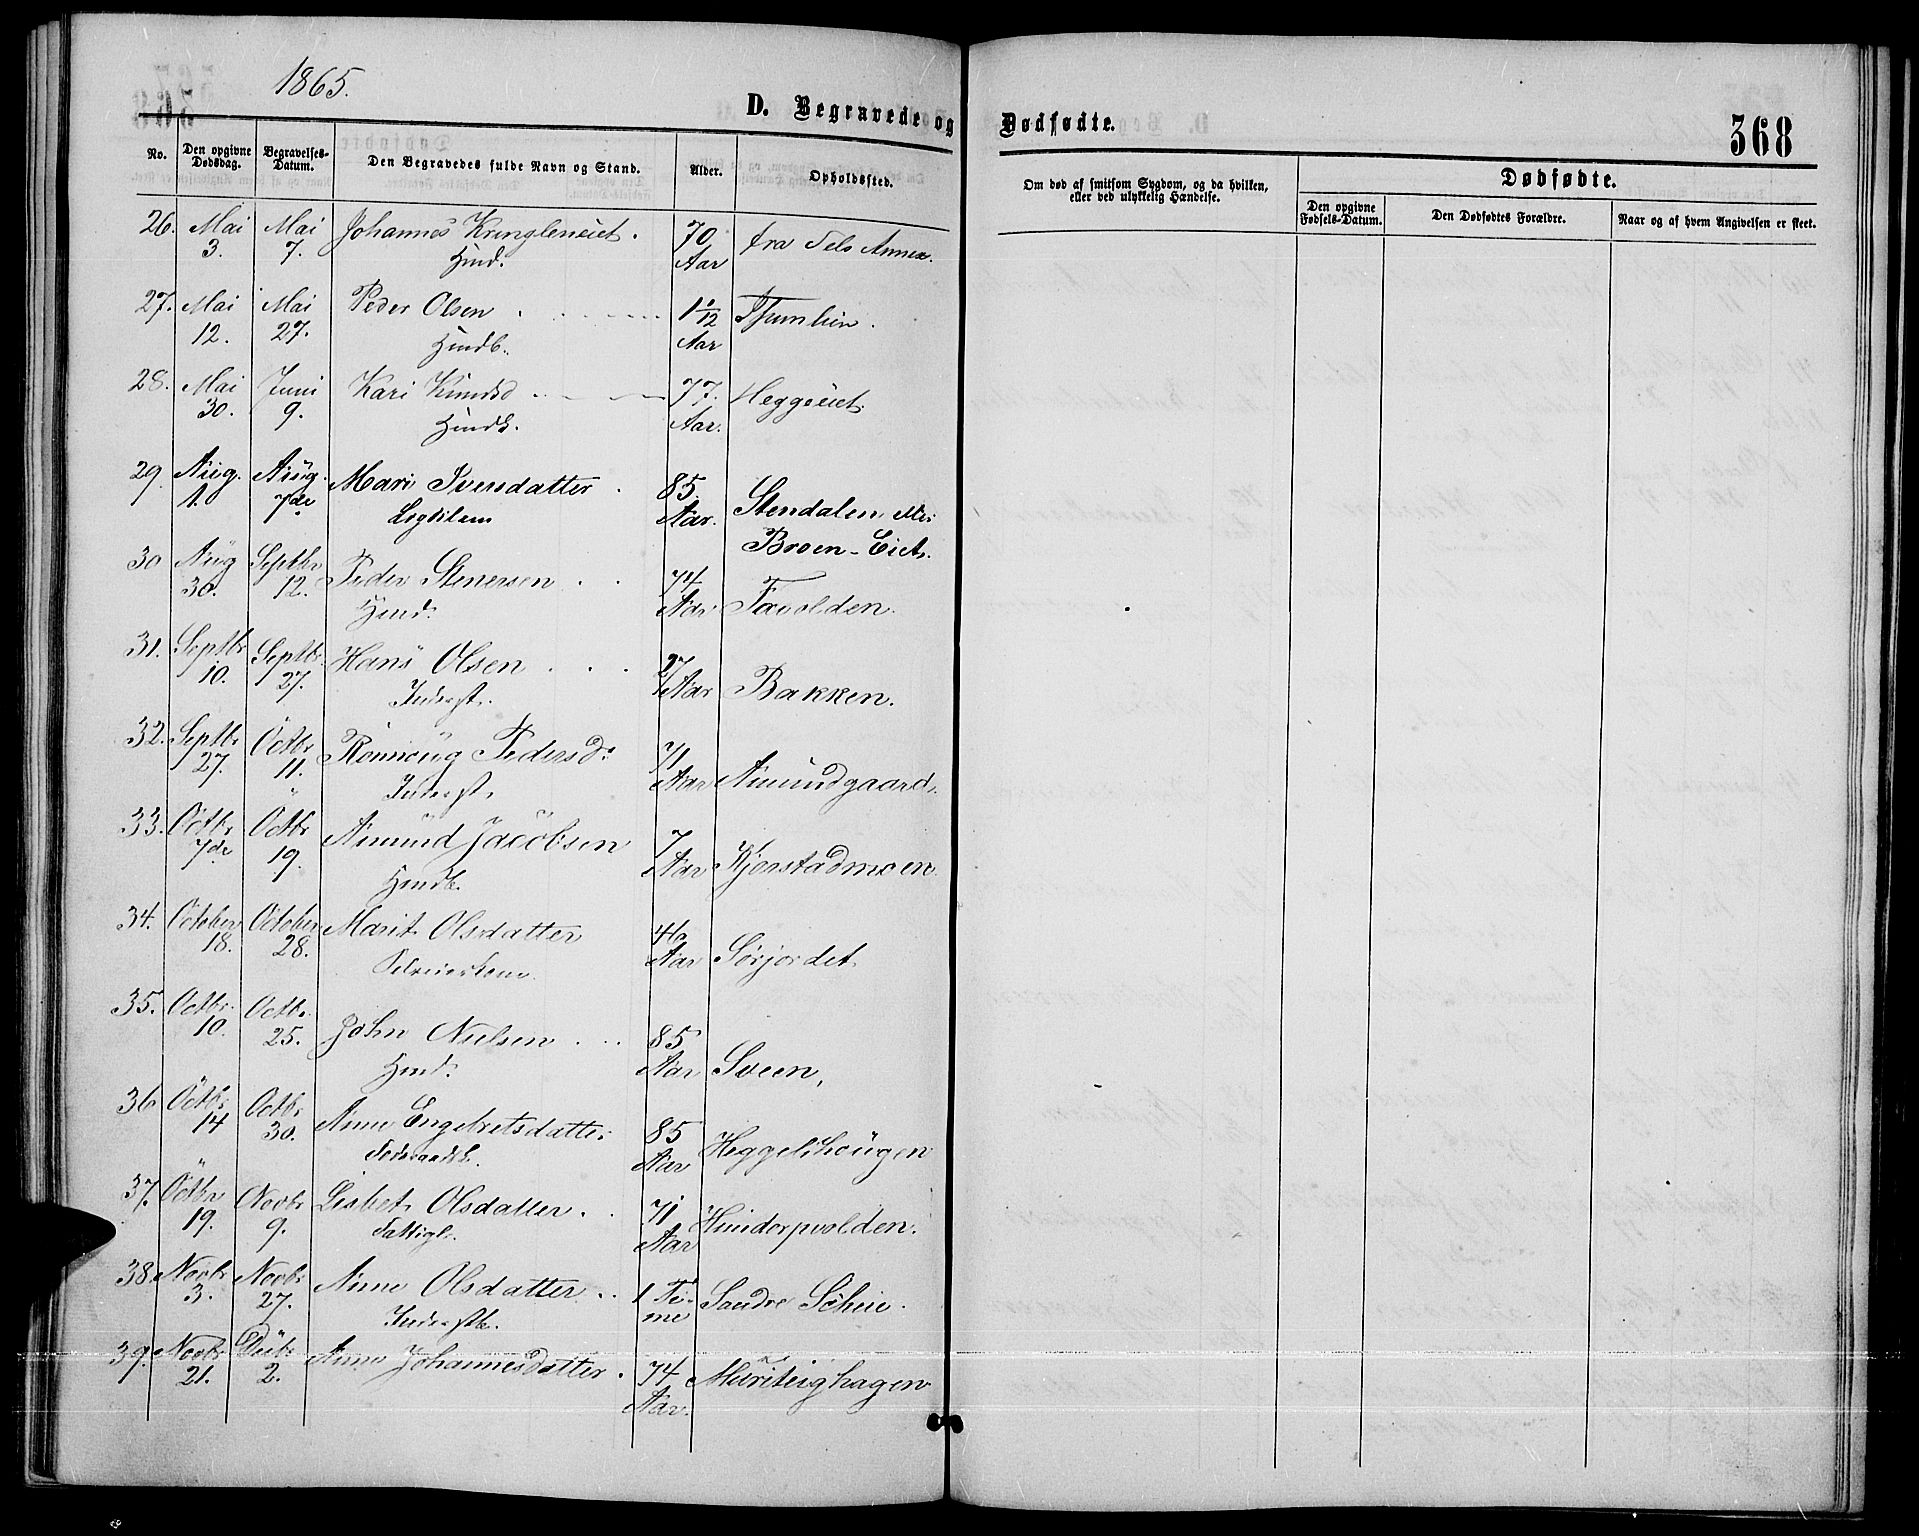 1865.
D. Begravede og Dødfødte.
368
No. Den opgivne Dødsdag. Begravelses-Datum. Den Begravedes fulde Navn og Stand. Alder. Opholdssted.
Om død af smitsom Sygdom, og da hvilken, eller ved ulykkelig Hændelse.
Dødfødte.
Den opgivne Fødsels-Datum. Den Dødfødtes Forældre. Naar og af hvem Angivelsen er skeet.
26. Mai Mai Johannes Kringleneiet. 70 fra Fels Annex.
3. 7. Hmd. Aar
27. Mai Mai Peder Olsen 1 1/12
12. 27. Hmdb. Aar
28. Mai Juni Kari Knudsd 77. Heggeeiet.
30. 9. Aar.
29. Aug. Aug. Mari Iversdatter 85 Stendalen
1. 7de Legdslem Aar. Broen-Eiet.
30 Aug Septbr Peder Stenersen 74
30. 12. Hmd. Aar Favolden.
31. Septbr Septbr Hans Olsen 27
10. 27. Inderst. Aar Bakken.
32. Septbr Octbr Rønnoug Pedersd. 71
27. 11. Inderst. Aar Amundgaard.
33. Octbr Octbr Amund Jacobsen 7
7de 19. Hmdb. Aar Kjørstadmoen
34. October October Marit Olsdatter
18. 28. Selveierkone Aar Sørjordet
35. Octbr. Octbr. John Nielsen 85
10. 25. Hmd. Aar Sveen,
36 Octbr. Octbr Anne Engebretsdatter 85 Heggelihougen
14 30. Føderaadsk. Aar
37. Octbr Novbr Lisbet Olsdatter 71 Hundorpvolden.
19. 9. Fattigl. Aar
38. Novbr Novbr Anne Olsdatter 1 Ti- Søndre
3. 27. Inderstb. me
39. Novbr Decbr Anne Johannesdatter 74 Muriteighagen
21. 2. Aar.